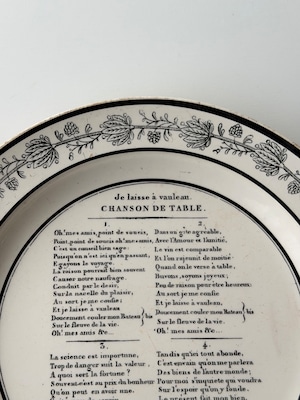 Je laisse à vauleau.
CHANSON DE TABLE.
1.
Oh' mes amis, point de soucis,
Point, point de soucis oh' mes amis,
C'est un conseil bien sage:
Puisqu'on n'est ici qu'en passant,
Egayons le voyage.
La raison pourrait bien souvent
Causer notre naufrage.
Conduit par le desir,
Sur la nacelle du plaisir,
Au sort je me confie
Et je laisse à vauleau
Doucement couler mon Bateau } bis
Sur le fleuve de la vie.
Oh' mes amis &c...
2.
Dans un gîte agréable,
Avec l'Amour et l'amitié,
Le vin est comparable
Et l'on rajeunit de moitié
Quand on le verse à table,
Buvons, soyons joyeux;
Peu de raison pour être heureux:
Au sort je me confie
Et je laisse à vauleau,
Doucement couler mon Bateau } bis
Sur le fleuve de la vie.
Oh' mes amis &c...
3.
La science est importune,
Trop de danger suit la valeur,
A quoi sert la fortune ?
Souvent c'est au prix du bonheur
Qu'on peut en avoir une.
4.
Tandis qu'ici tout abonde,
C'est en vain qu'on me parlera
Des biens de l'autre monde;
Pour moi s'inquiete qui voudra
Sur l'espoir qu'on y fonde.
Le présent fait mon bien,